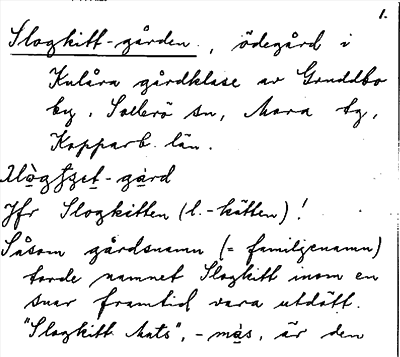 1.
Slogkitt-gården., ödegård i
Kulåra gårdklase av Gruddbo
by, Sollerö sn, Mora tg,
Kopparb. län.
Jfr Slogkitten (l. -kätten)!
Såsom gårdsnamn (= familjenamn)
torde namnet Slogkitt inom en
snar framtid vara utdött.
"Slogkitt Mats", -mas, är den